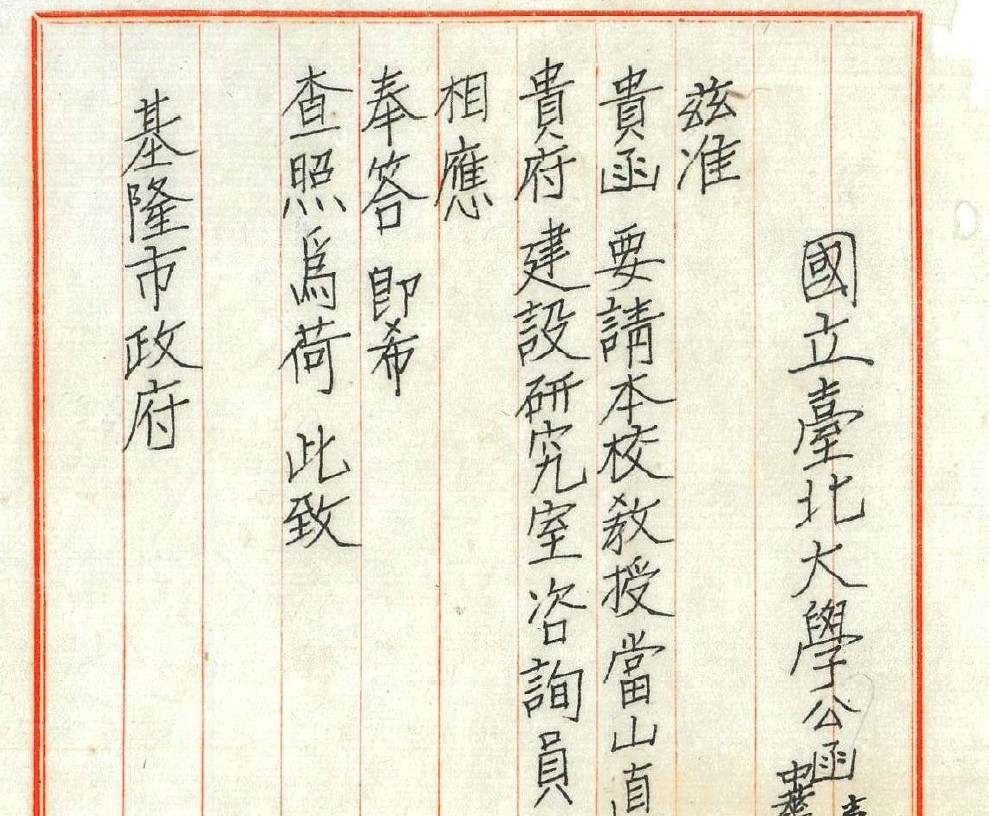 國立臺北大學公函
中華
茲准
貴函 要請本校教授當山直
貴府 建設研究室咨詢員
相應
奉答 即希
查照爲荷 此致
基隆市政府